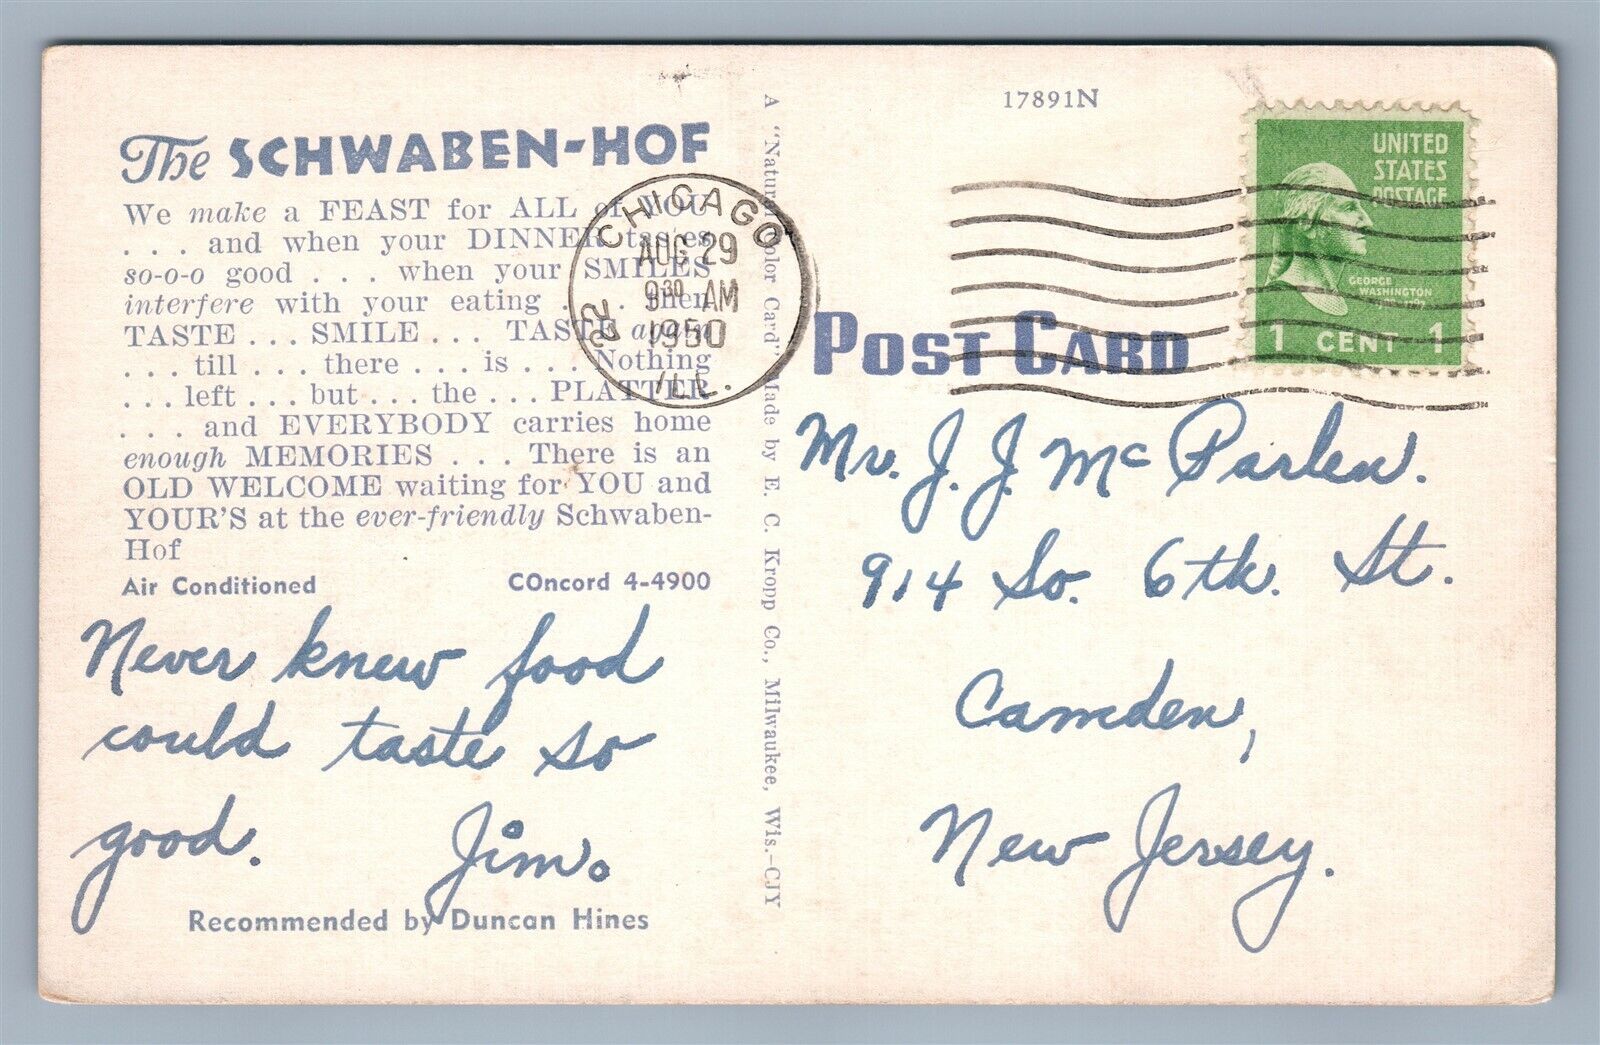 The SCHWABEN-HOF
We make a FEAST for ALL of YOU
. . . and when your DINNER tastes
so-o-o good . . . when your SMILES
interfere with your eating . . . then
TASTE . . . SMILE . . . TASTE again
. . . till . . . there . . . is . . . Nothing
. . . left . . . but . . . the . . . PLATTER
. . . and EVERYBODY carries home
enough MEMORIES . . . There is an
OLD WELCOME waiting for YOU and
YOUR'S at the ever-friendly Schwaben-
Hof
Air Conditioned COncord 4-4900
Never knew food
could taste so
good. Jim.
Recommended by Duncan Hines
A "Natural Color Card" Made by E. C. Kropp Co., Milwaukee, Wis.-CJY
CHICAGO
AUG 29
9 30 AM
1950
ILL.
22
17891N
UNITED
STATES
POSTAGE
GEORGE
WASHINGTON
1 CENT 1
POST CARD
Mr. J. J. McParlen.
914 So. 6th. St.
Camden,
New Jersey.